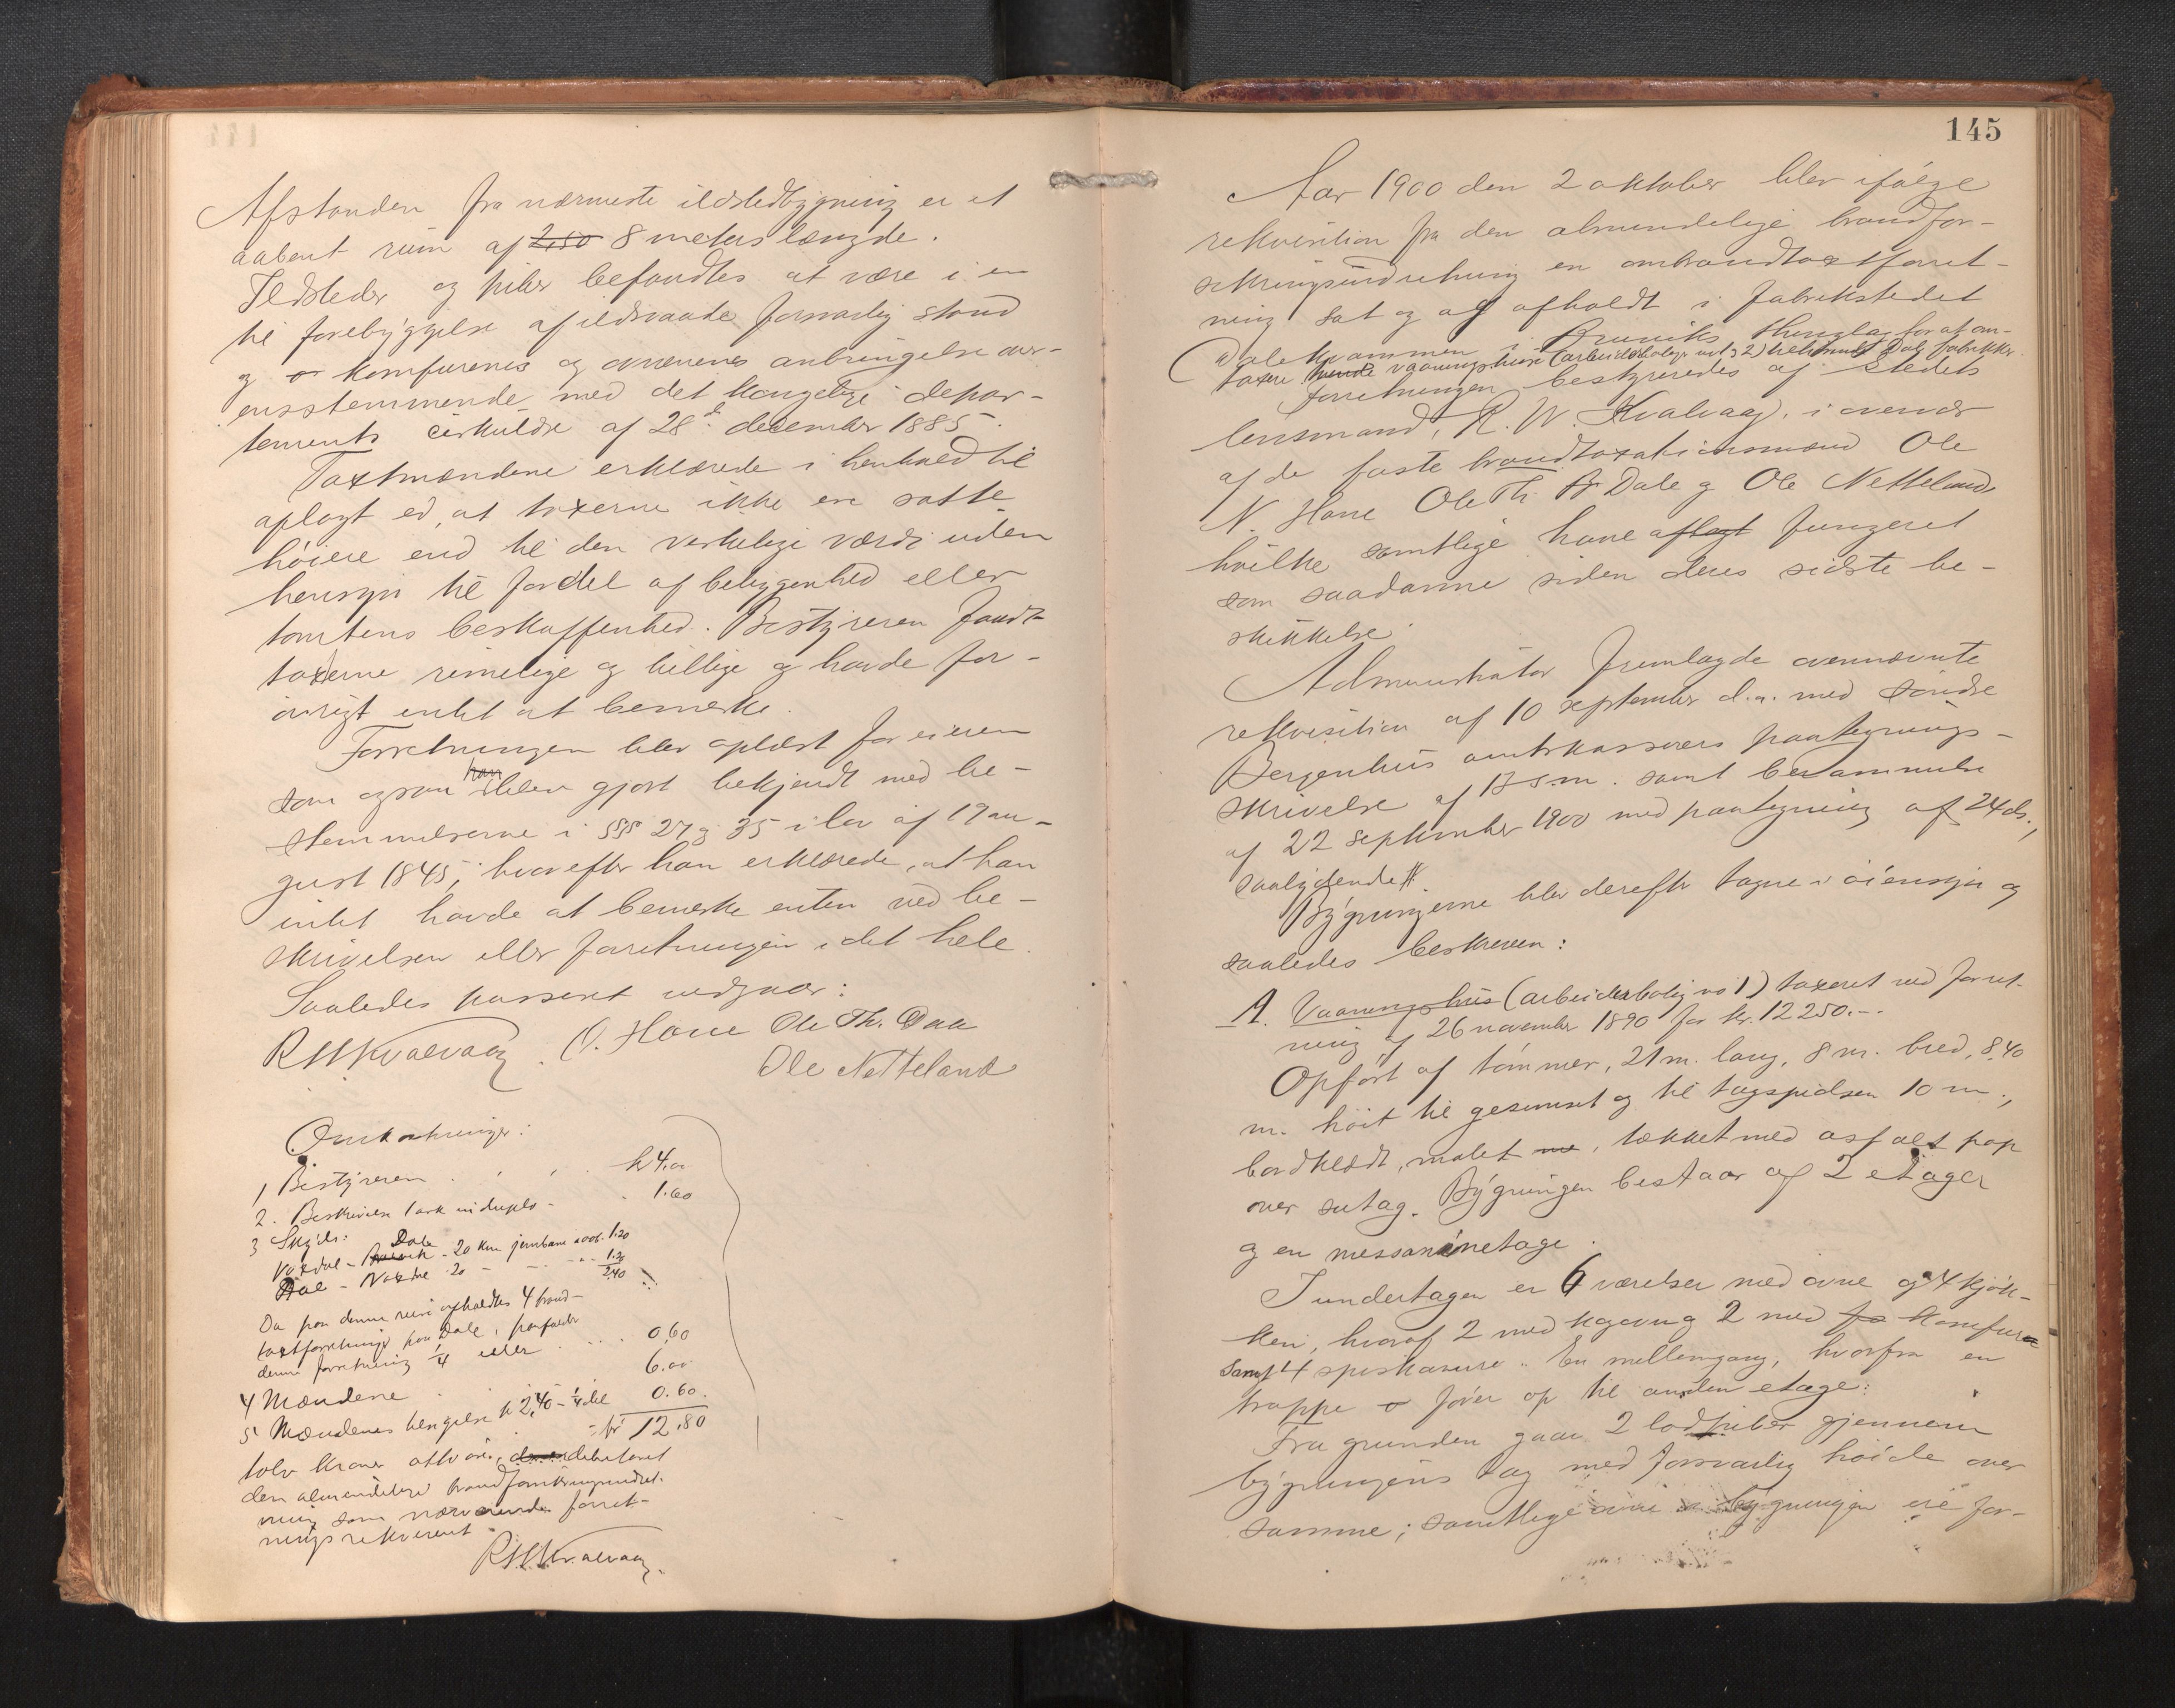 Afstanden fra nærmeste ildstedbygning er et
aabent rum af 2,50 8 meters længde.
Ildsteder og piber befandtes at være i en
til forebyggelse af ildsvaade forsvarlig stand
og komfurenes og ovnenes anbringelse over-
ensstemmende med det kongelige depar-
tements cirkulære af 28de december 1885.
Taxtmændene erklærede i henhold til
aflagt ed, at taxterne ikke ere satte
høiere end til den virkelige værdi uden
hensyn til fordel af beliggenhed eller
tomtens beskaffenhed. Bestyreren fandt
taxterne rimelige og billige og havde for-
øvrigt intet at bemerke.
Forretningen blev oplæst for eieren
som ogsaa han blev gjort bekjendt med be-
stemmelserne i §§§ 27 og 35 i lov af 19 au-
gust 1845, hvorefter han erklærede, at han
intet havde at bemerke enten ved be-
skrivelsen eller forretningen i det hele.
Saaledes passeret vedgaaer:
R W Kvalvaag. O. Hane Ole Th. Daa
Ole Netteland
Omkostninger:
1 Bestyreren . . . kr 4.00
2. Beskrivelse 1 ark in duplo - . 1.60
3 Skyds:
Vaxdal - Dale - 20 km jernbane a 006. 1.20
Dale - Vaxdal 20 - - - - 1.20
2.40
Da paa denne reise afholdtes 4 brand-
taxtforretninger paa Dale, paafalder
denne forretning 1/4 eller . . . . 0.60
4 Mændene . . 6.00
5 Mændenes tengelse kr 2,40 - 1/4 del 0.60.
kr 12.80
tolv kroner otti øre, debiteret
den almindelige brandforsikringsindret-
ning som nærværende forret-
nings rekvirent.
R. W. Kvalvaag.
145
Aar 1900 den 2 oktober blev ifølge
rekvisition fra den almindelige brandfor-
sikringsindretning en ombrandtaxtforret-
ning sat og afholdt i fabrikstedet
Dalekvammen i Bruviks thinglag for at om-
taxere vaaningshuse (arbeiderbolige no 1 & 2) tilhørende Dale fabrikker
Forretningen bestyredes af stedets
lensmand, R. W. Kvalvaag, i overvær
af de faste brandtaxationsmænd Ole
N. Hane Ole Th. Dale og Ole Netteland
hvilke samtlige have aflagt fungeret
som saadanne siden deres sidste be-
skikkelse.
Administrator fremlagde ovennævnte
rekvisition af 10 september d.a. med Søndre
Bergenhus amtskasserers paategnings-
skrivelse af 13 s.m. samt berammelse
af 22 september 1900 med paategning af 24 ds.,
saalydende #.
Bygningerne blev derefter tagne i øiensyn og
saaledes beskreven:
A. Vaaningshus (arbeiderbolig no 1) taxeret ved forret-
ning af 26 november 1890 for kr. 12250.-.
Opført af tømmer, 21 m. lang, 8 m. bred, 8,40
m. høit til gesimset og til tagspidsen 10 m.,
bordklædt, malet, tækket med asfalt pap
over sutag. Bygningen bestaar af 2 etager
og en messaninetage.
I underetagen er 6 værelser med ovne og 4 kjøk-
ken, hvoraf 2 med kogeovn og 2 med komfure
samt 4 spiskamre. En mellemgang, hvorfra en
trappe fører op til anden etage:
Fra grunden gaar 2 lodpiber gjennem
bygningens tag med forsvarlig høide over
samme; samtlige ovne i bygningen ere for-